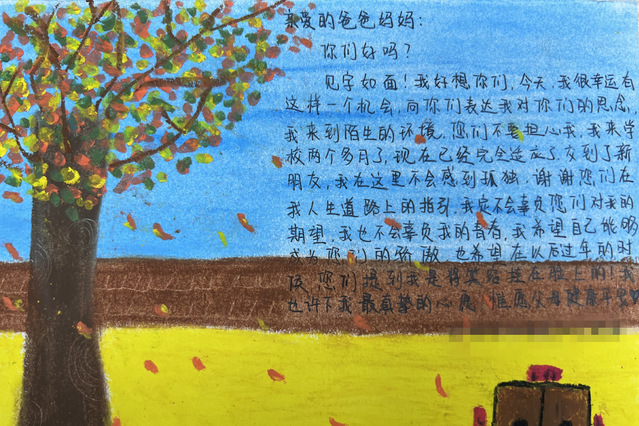 亲爱的爸爸妈妈：
你们好吗？
见字如面！我好想你们，今天，我很幸运有
这样一个机会，向你们表达我对你们的思念，
我来到陌生的环境，您们不要担心我，我来学
校两个多月了，现在已经完全适应了，交到了新
朋友，我在这里不会感到孤独，谢谢您们在
我人生道路上的指引，我定不会辜负您们对我的
期望，我也不会辜负我的青春，我希望自己能够
成为你们的骄傲，也希望在以后过年的时
候，您们提到我是将笑容挂在脸上的！我
也许下我最真挚的心愿，惟愿父母健康平安